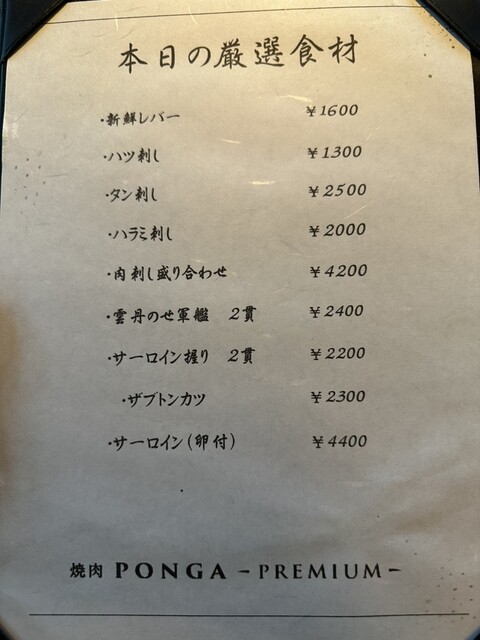 本日の厳選食材
・新鮮レバー ¥1600
・ハツ刺し ¥1300
・タン刺し ¥2500
・ハラミ刺し ¥2000
・肉刺し盛り合わせ ¥4200
・雲丹のせ軍艦 2貫 ¥2400
・サーロイン握り 2貫 ¥2200
・ザブトンカツ ¥2300
・サーロイン(卵付) ¥4400
焼肉 PONGA -PREMIUM-